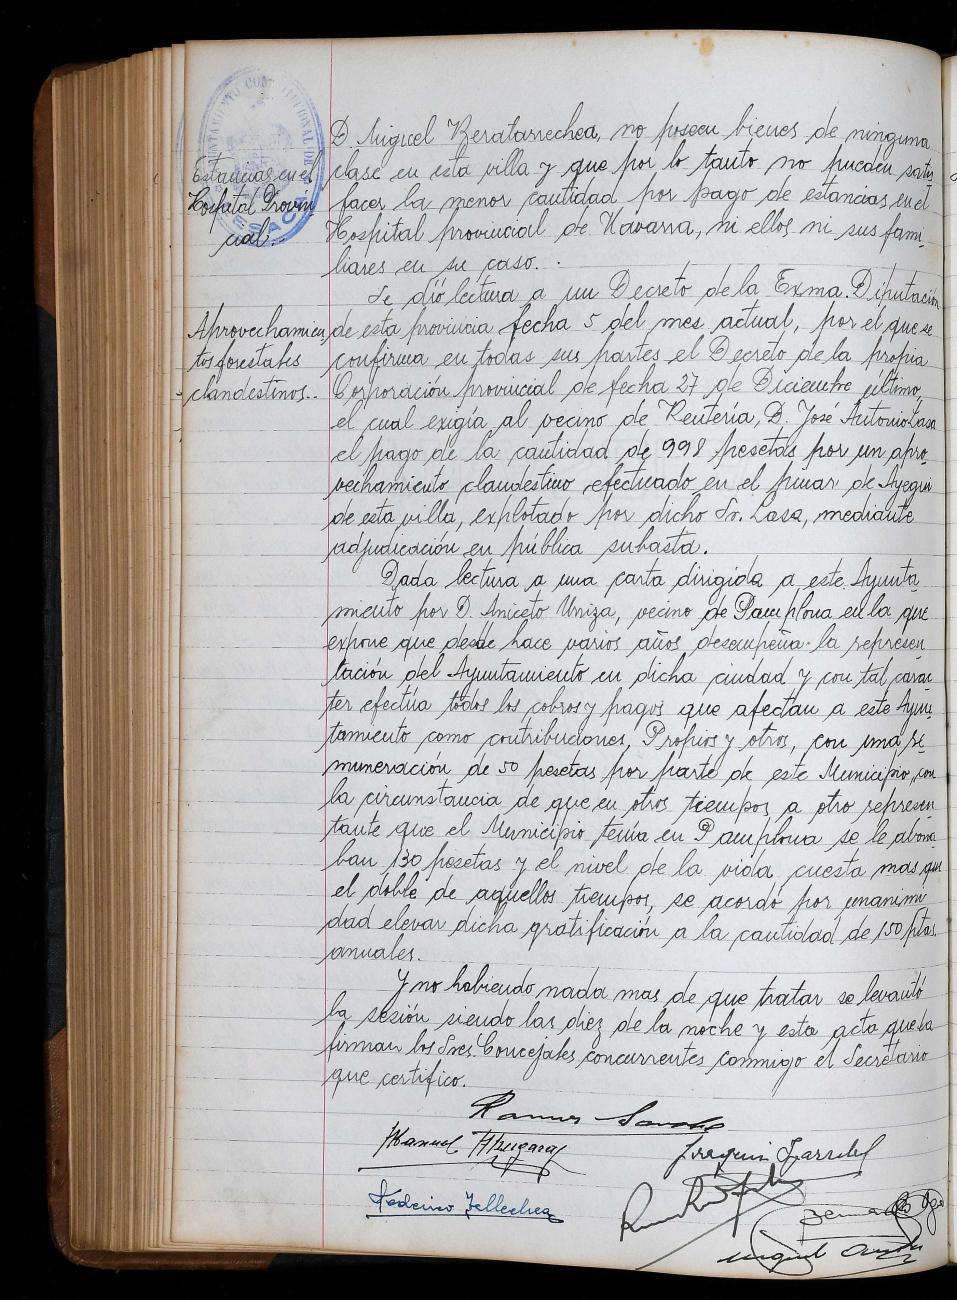 AYUNTAMIENTO CONSTITUCIONAL DE
LESACA
Estancias en el
Hospital Provin
cial.
D. Miguel Beratarrechea, no poseen bienes de ninguna
clase en esta villa y que por lo tanto no pueden satis
facer la menor cantidad por pago de estancias, en el
Hospital provincial de Navarra, ni ellos ni sus fami-
liares en su caso.
Aprovechamien
tos forestales
clandestinos..
Se dió lectura a un Decreto de la Exma. Diputación
de esta provincia fecha 5 del mes actual, por el que se
confirma en todas sus partes el Decreto de la propia
Corporación provincial de fecha 27 de Diciembre último,
el cual exigía al vecino de Rentería, D. José Antonio Lasa
el pago de la cantidad de 998 pesetas por un apro-
vechamiento clandestino efectuado en el pinar de Ayegui
de esta villa, explotado por dicho Sr. Lasa, mediante
adjudicación en pública subasta.
Dada lectura a una carta dirigida a este Ayunta
miento por D. Aniceto Uniza, vecino de Pamplona en la que
expone que desde hace varios años desempeña la represen
tación del Ayuntamiento en dicha ciudad y con tal carac-
ter efectúa todos los cobros y pagos que afectan a este Ayun-
tamiento como contribuciones, Propios y otros, con una re-
muneración de 50 pesetas por parte de este Municipio, con
la circunstancia de que en otros tiempos, a otro represen
tante que el Municipio tenía en Pamplona se le abona
ban 130 pesetas y el nivel de la vida cuesta mas que
el doble de aquellos tiempos, se acordó por unanimi
dad elevar dicha gratificación a la cantidad de 150 ptas.
anuales.
Y no habiendo nada mas de que tratar se levantó
la sesión siendo las diez de la noche y esta acta que la
firman los Sres. Concejales concurrentes conmigo el Secretario
que certifico.
Ramon Sancho
Manuel
Joaquin
Federico Tellechea
Miguel